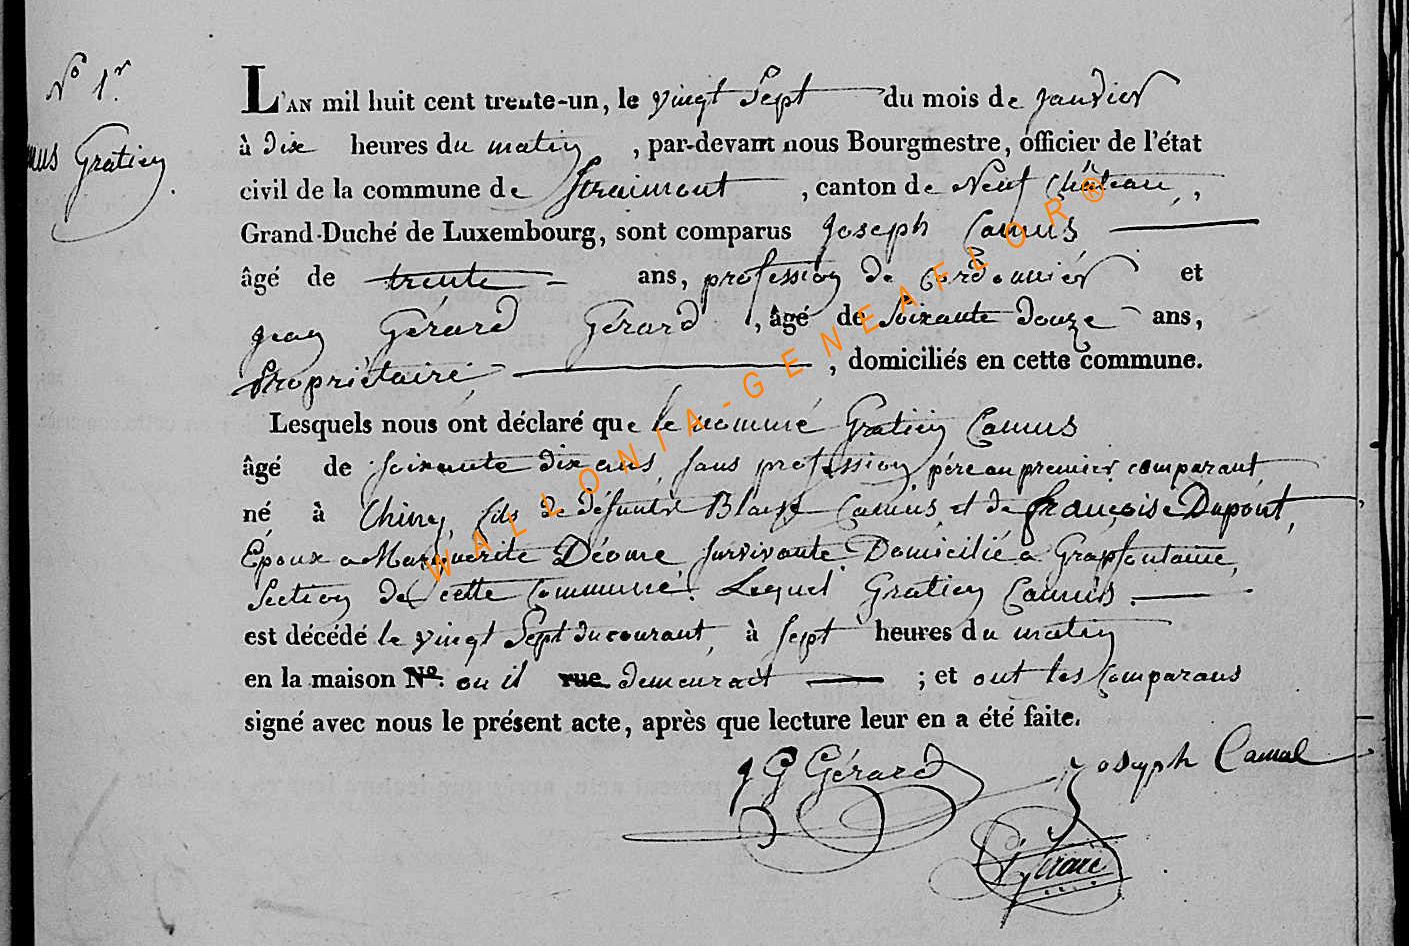 No 1r
mus Gratien
L'AN mil huit cent trente-un, le vingt Sept du mois de janvier
à dix heures du matin, par-devant nous Bourgmestre, officier de l'état
civil de la commune de Straimont, canton de Neuf Château,
Grand-Duché de Luxembourg, sont comparus Joseph Camus
âgé de trente ans, profession de cordonnier et
jean Gérard Gérard, âgé de Soixante douze ans,
Propriètaire, domiciliés en cette commune.
Lesquels nous ont déclaré que le nommé Gratien Camus
âgé de soixante dix ans, sans profession, père au premier comparant
né à Chiny, fils de défunts Blaise Camus, et de françoise Dupont,
Epoux a Marguerite Déome survivante Domicilié a Grapfontaine,
Section de cette Commune. Lequel Gratien Camus.
est décédé le vingt Sept du courant, à sept heures du matin
en la maison No. ou il rue demeurait ; et ont les Comparans
signé avec nous le présent acte, après que lecture leur en a été faite.
J G Gérard Joseph Camus
WALLONIA-GENEAFLOR®